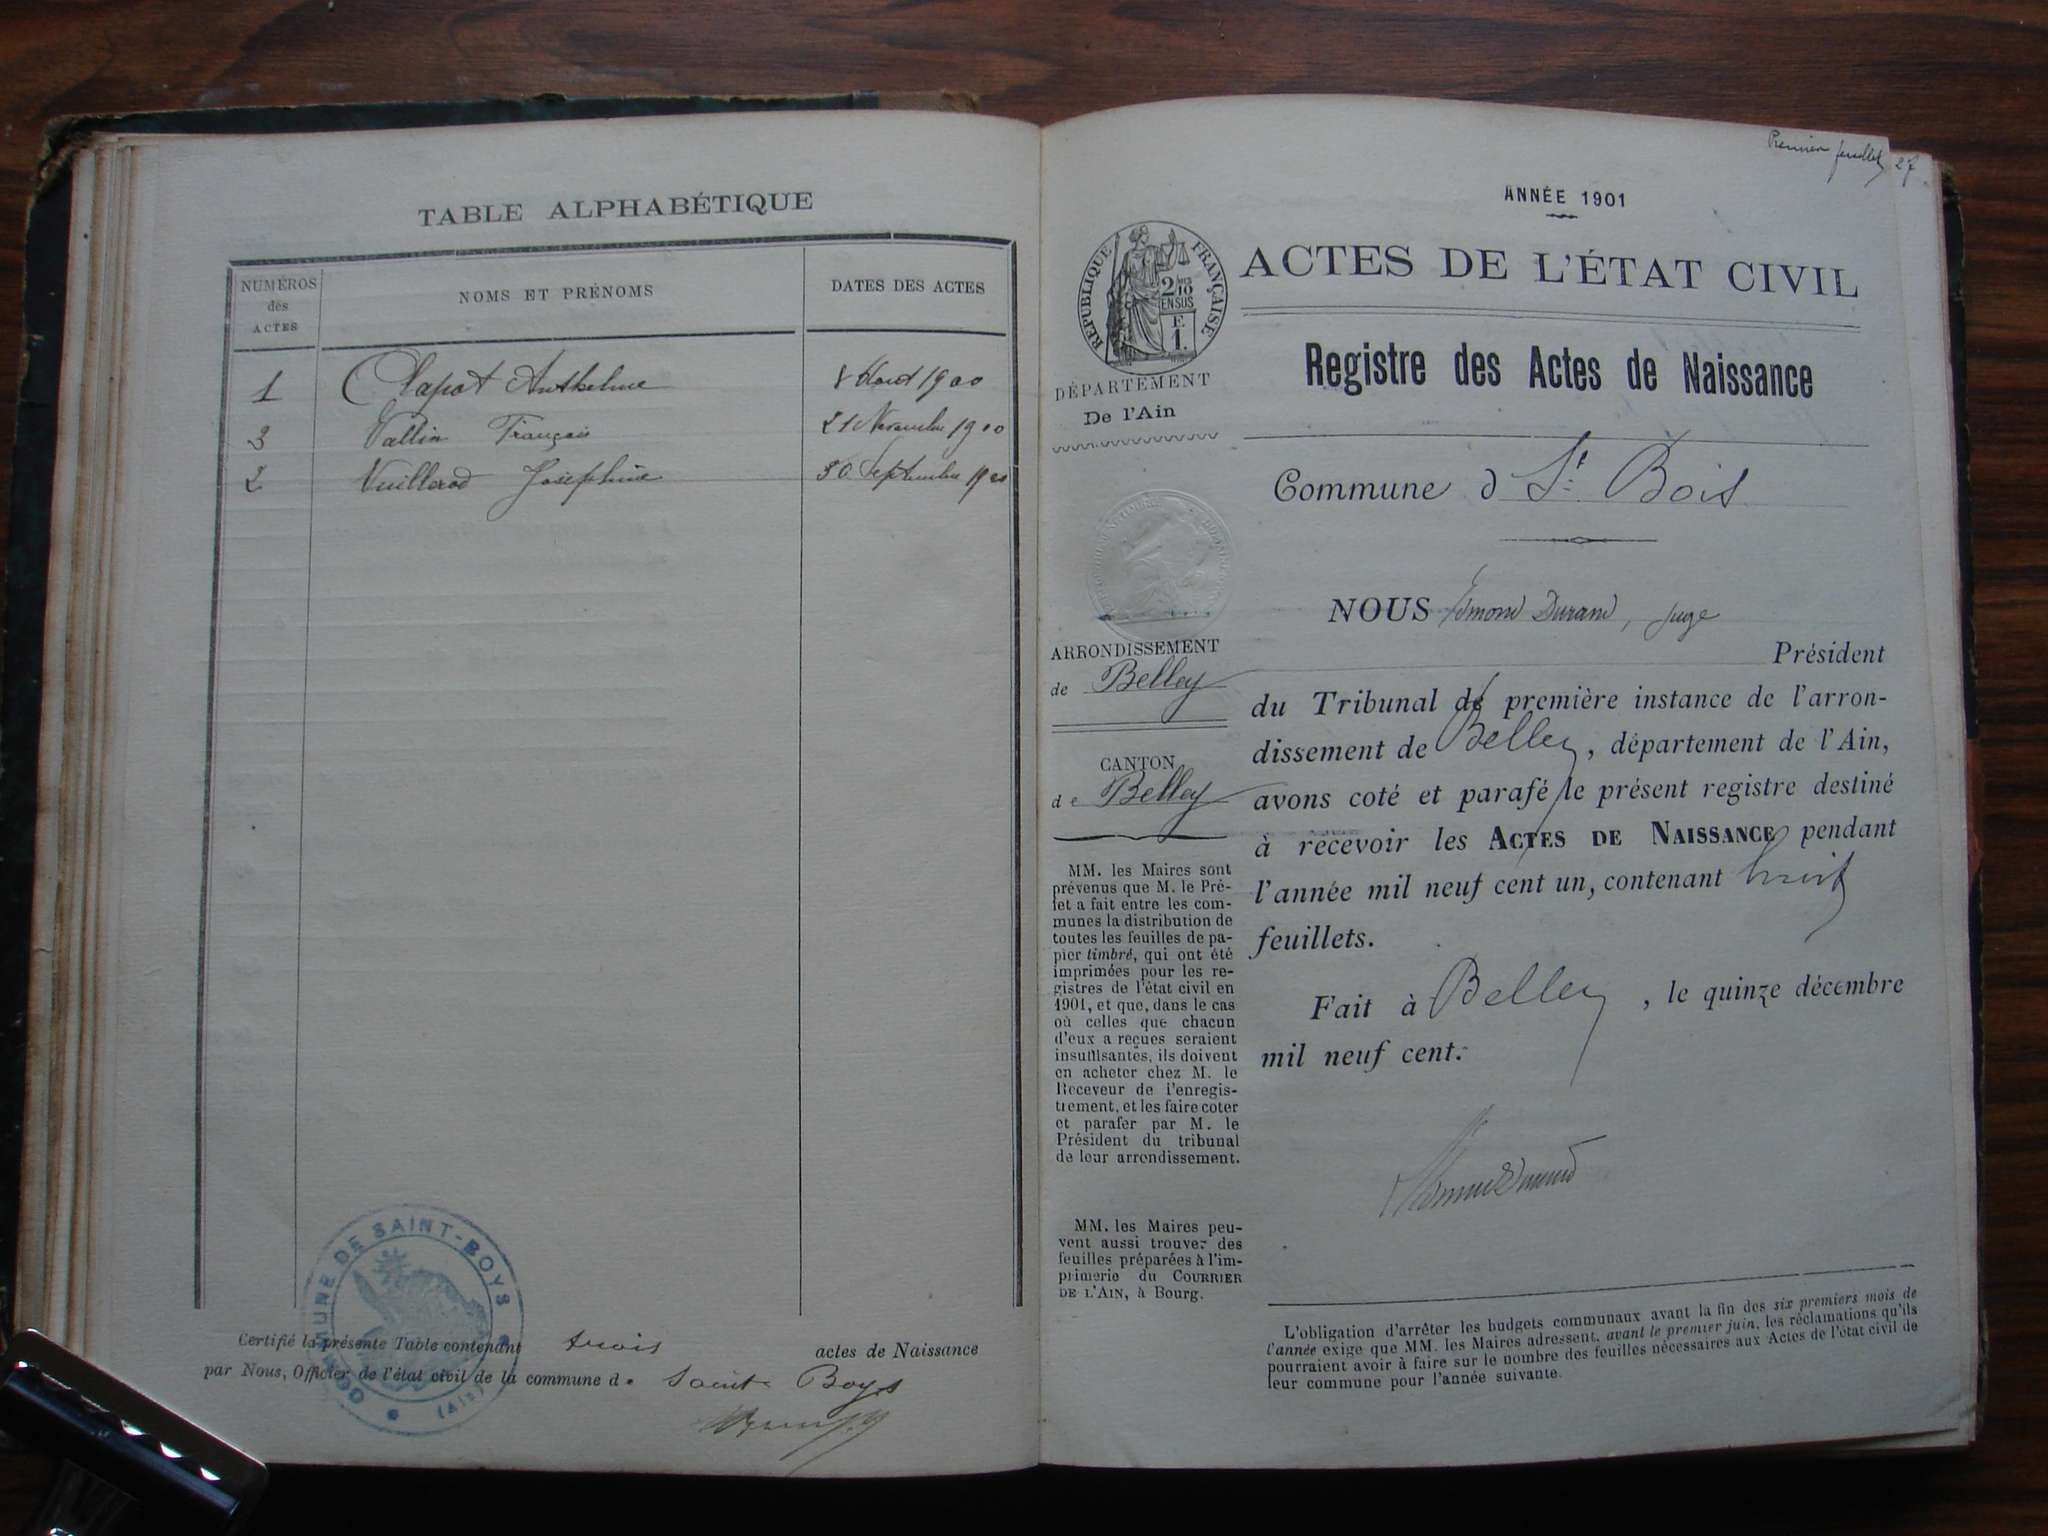 TABLE ALPHABÉTIQUE
NUMÉROS
des
ACTES
NOMS ET PRÉNOMS
DATES DES ACTES
1 Clapot Anthelme 8 Aout 1900
3 Vallin Français 21 Novembre 1900
2 Vuillerod Joséphine 30 Septembre 1900
COMMUNE DE SAINT-BOYS
(Ain)
Certifié la présente Table contenant trois actes de Naissance
par Nous, Officier de l'état civil de la commune de Saint-Boys
Premier feuillet 27
ANNÉE 1901
RÉPUBLIQUE FRANÇAISE
2/10
EN SUS
F.
1.
ACTES DE L'ÉTAT CIVIL
Registre des Actes de Naissance
DÉPARTEMENT
De l'Ain
Commune d St. Bois
NOUS Edmond Durand, juge
Président
ARRONDISSEMENT
de Belley
CANTON
de Belley
du Tribunal de première instance de l'arron-
dissement de Belley, département de l'Ain,
avons coté et parafé le présent registre destiné
à recevoir les ACTES DE NAISSANCE pendant
l'année mil neuf cent un, contenant huit
feuillets.
Fait à Belley, le quinze décembre
mil neuf cent.
Edmond Durand
MM. les Maires sont
prévenus que M. le Pré-
fet a fait entre les com-
munes la distribution de
toutes les feuilles de pa-
pier timbré, qui ont été
imprimées pour les re-
gistres de l'état civil en
1901, et que, dans le cas
où celles que chacun
d'eux a reçues seraient
insuffisantes, ils doivent
en acheter chez M. le
Receveur de l'enregis-
trement, et les faire coter
et parafer par M. le
Président du tribunal
de leur arrondissement.
MM. les Maires peu-
vent aussi trouver des
feuilles préparées à l'im-
primerie du COURRIER
DE L'AIN, à Bourg.
L'obligation d'arrêter les budgets communaux avant la fin des six premiers mois de
l'année exige que MM. les Maires adressent, avant le premier juin, les réclamations qu'ils
pourraient avoir à faire sur le nombre des feuilles nécessaires aux Actes de l'état civil de
leur commune pour l'année suivante.